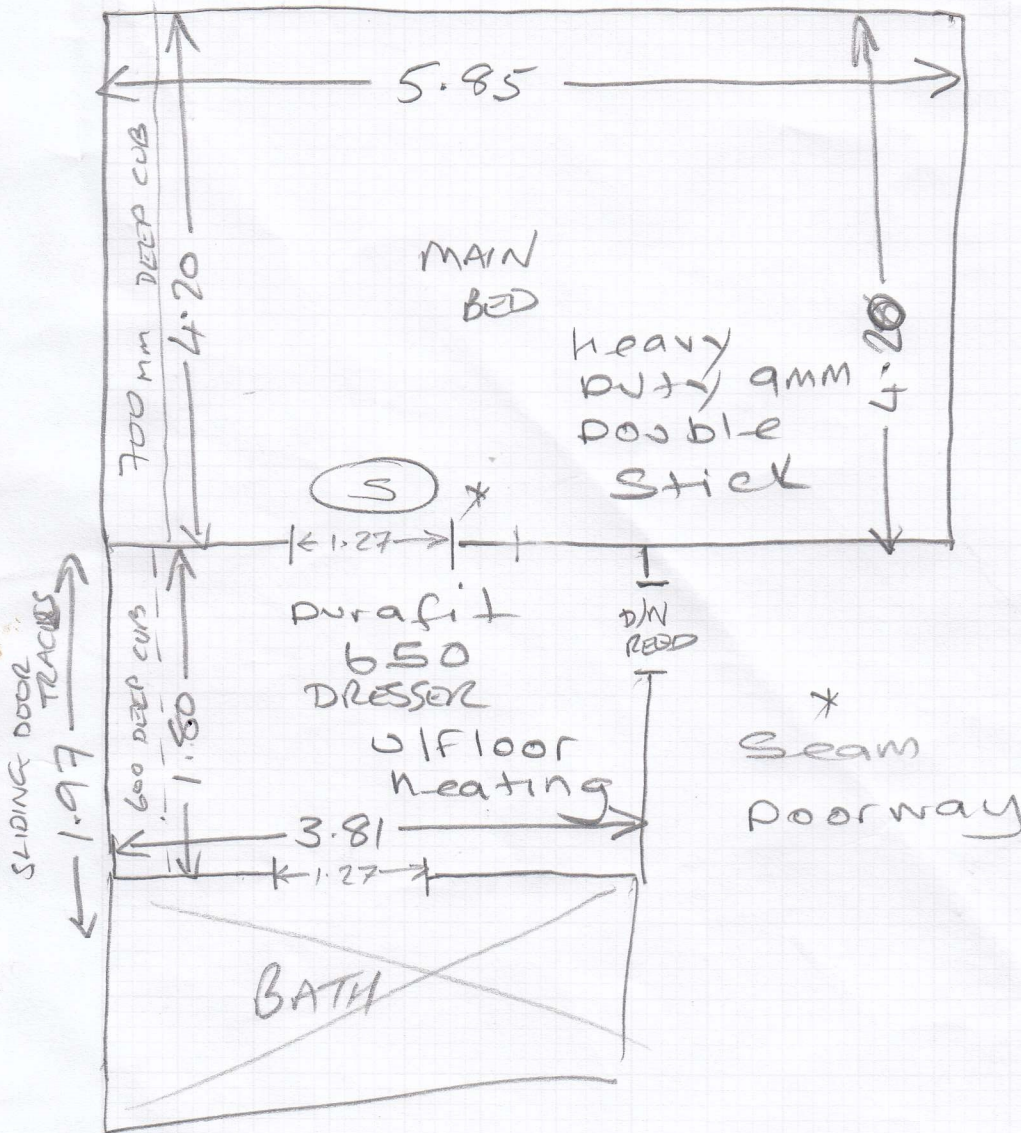 5.85
700 mm DEEP CUB
4.20
MAIN
BED
4.20
heavy
Duty 9mm
Double
Stick
S
*
1.27
SLIDING DOOR
TRACKS
1.97
600 DEEP CUB
1.80
Durafit
650
DRESSER
U/Floor
heating
D/N
REED
*
Seam
Doorway
3.81
1.27
BATH